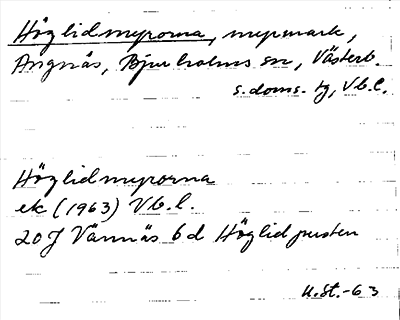 Höglidmyrorna, myrmark,
Angnäs, Bjurholms sn, Västerb.
s. doms. tg, Vb. l.
Höglidmyrorna
ek (1963) Vb. l.
20 J Vännäs 6 d Höglidmyrorna
U. St. -63